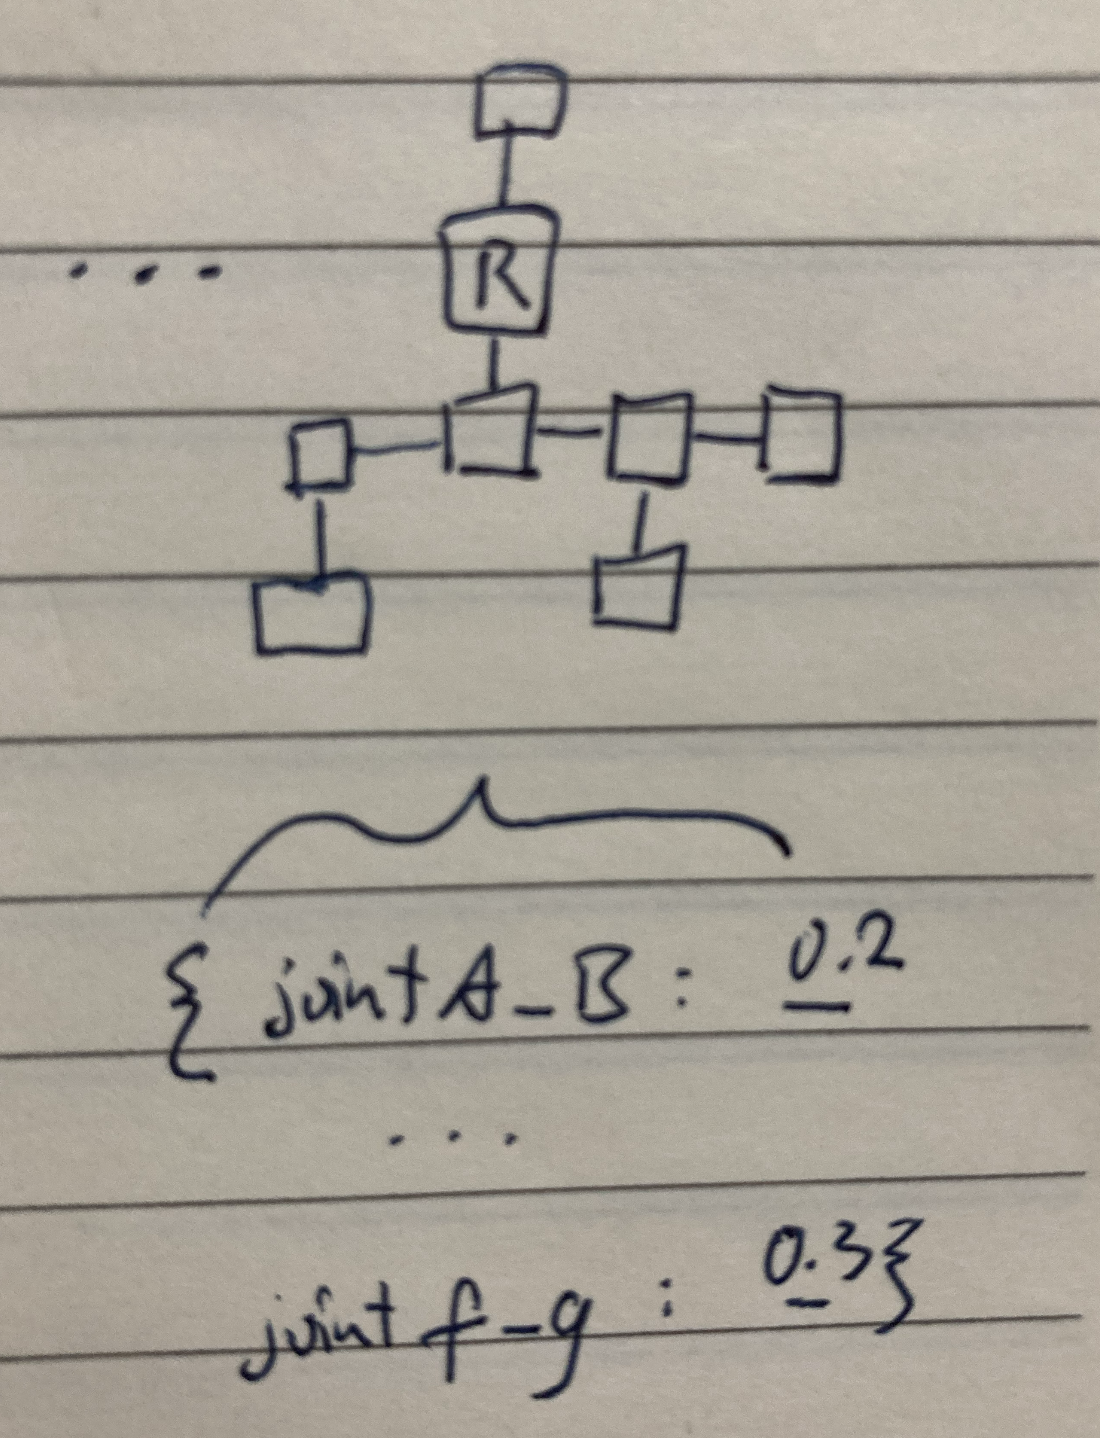 R
...
{ joint A_B : 0.2
...
joint f_g : 0.3}